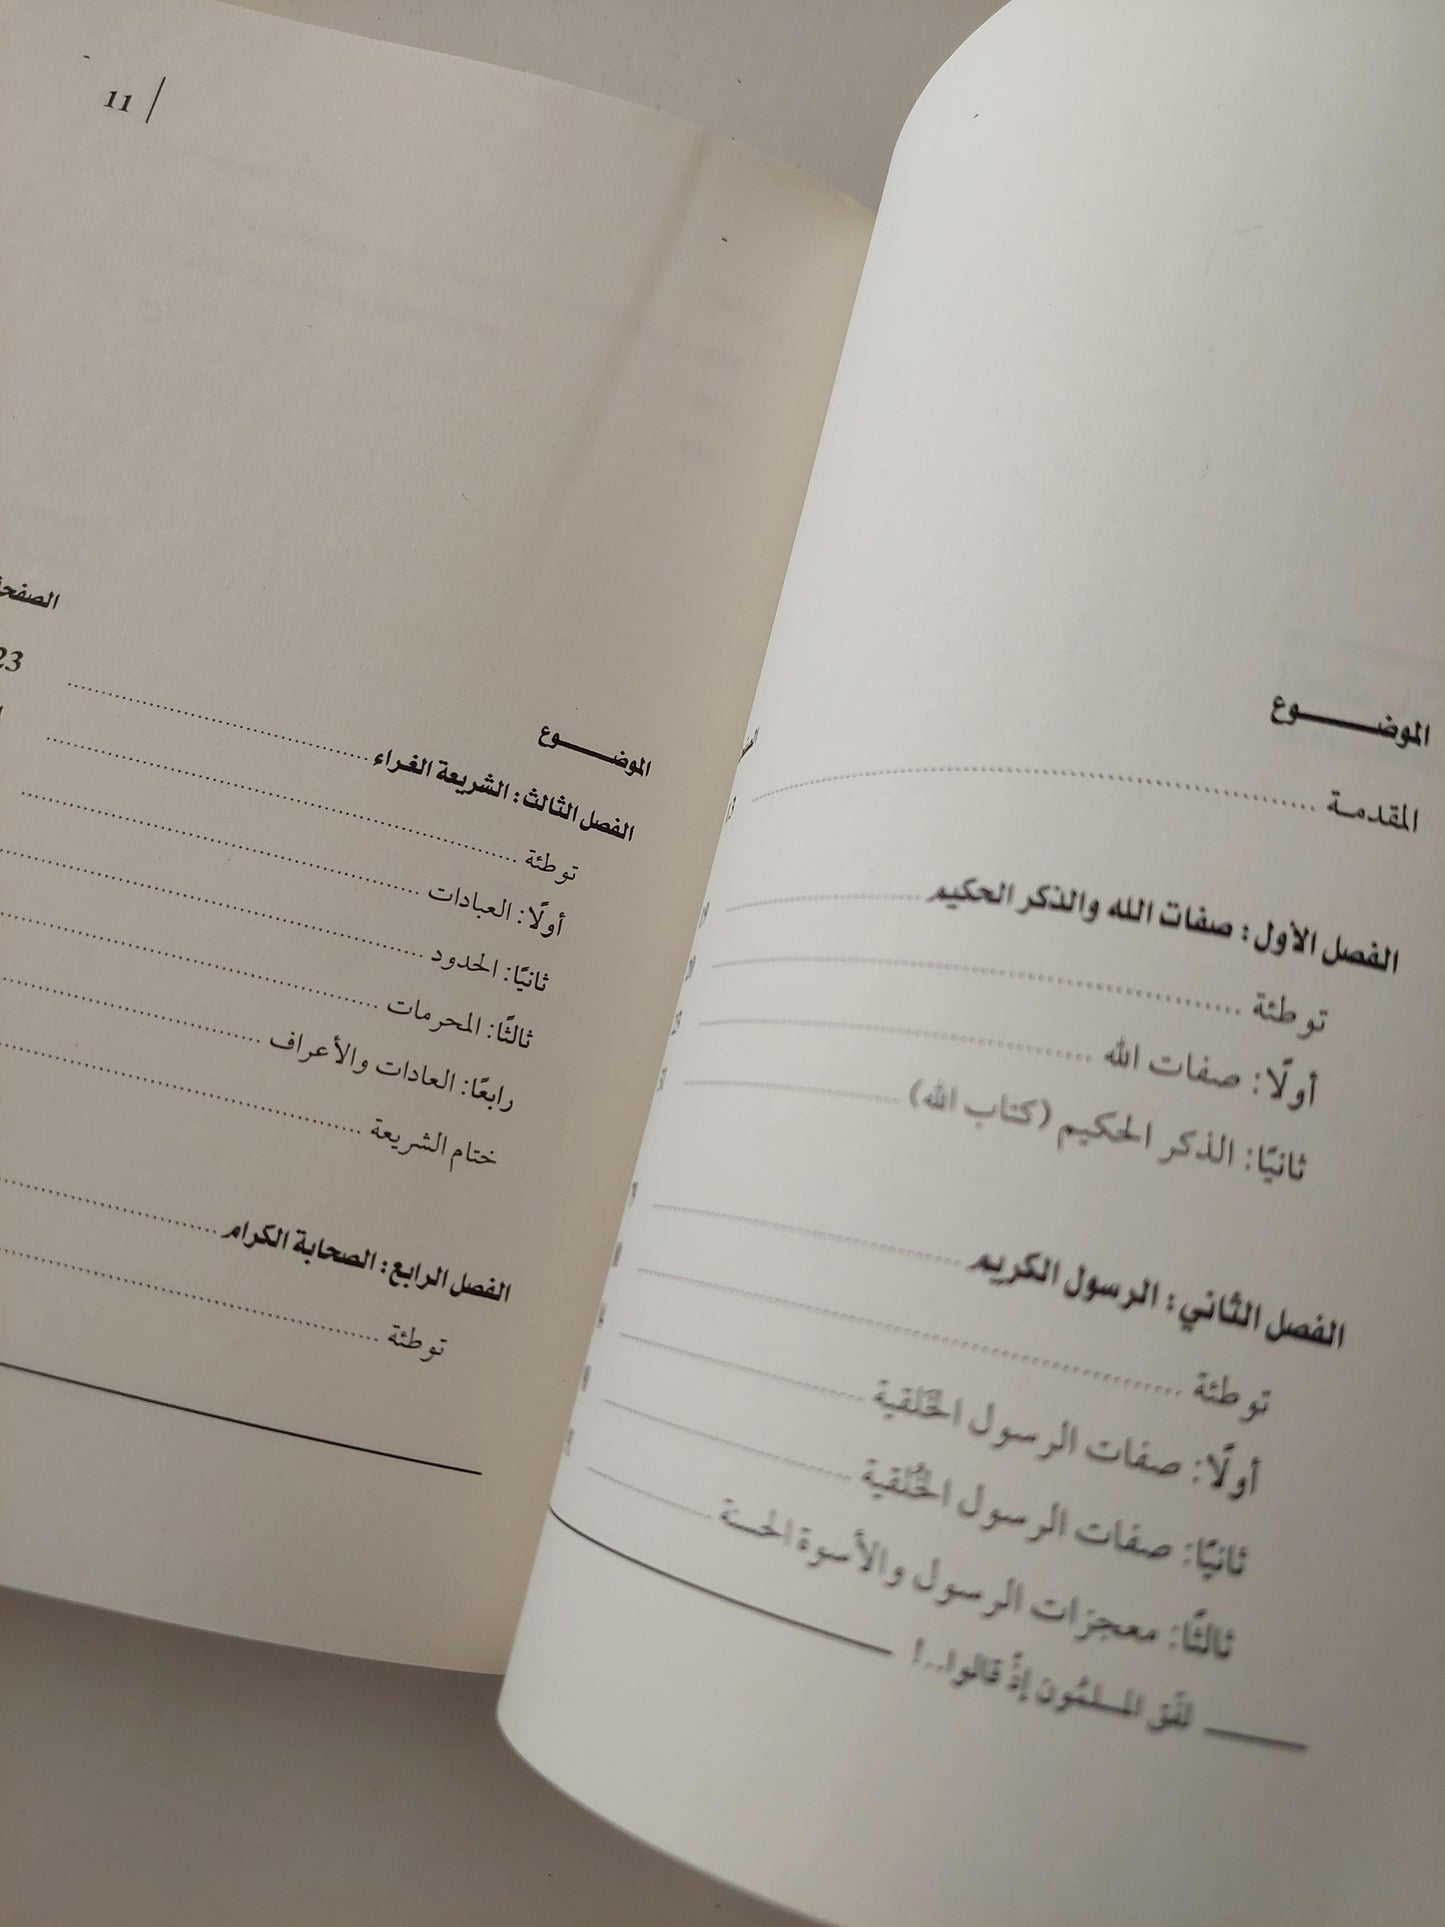 الموضـــــوع
المقدمـة
الفصل الأول: صفات الله والذكر الحكيم
توطئة
أولًا: صفات الله
ثانيًا: الذكر الحكيم (كتاب الله)
الفصل الثاني: الرسول الكريم
توطئة
أولًا: صفات الرسول الخَلقية
ثانيًا: صفات الرسول الخُلقية
ثالثًا: معجزات الرسول والأسوة الحسنة
لفّق المسلمُون إذْ قالوا..!
11
الموضـــــوع الصفحة
الفصل الثالث: الشريعة الغراء 23
توطئة
أولًا: العبادات
ثانيًا: الحدود
ثالثًا: المحرمات
رابعًا: العادات والأعراف
ختام الشريعة
الفصل الرابع: الصحابة الكرام
توطئة